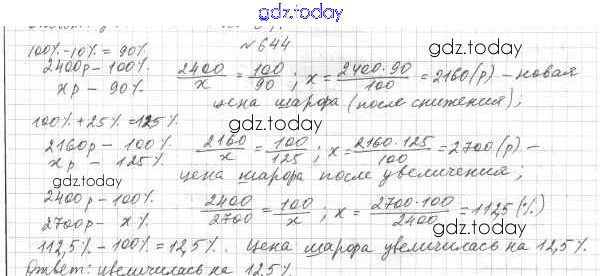 gdz.today
№ 644
100% - 10% = 90%
2400р - 100%
xр - 90%
2400/x = 100/90 ; x = 2400·90/100 = 2160 (р) - новая
цена шарфа (после снижения);
gdz.today
100% + 25% = 125%
2160р - 100%
xр - 125%
2160/x = 100/125 ; x = 2160·125/100 = 2700 (р) -
цена шарфа после увеличения;
gdz.today
gdz.today
gdz.today
2400р - 100%
2700р - x%
2400/2700 = 100/x ; x = 2700·100/2400 = 112,5 (%)
112,5% - 100% = 12,5%. Цена шарфа увеличилась на 12,5%.
Ответ: увеличилась на 12,5%.
gdz.today